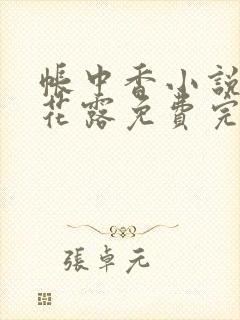 帳中香小說
花露免費完
張卓元